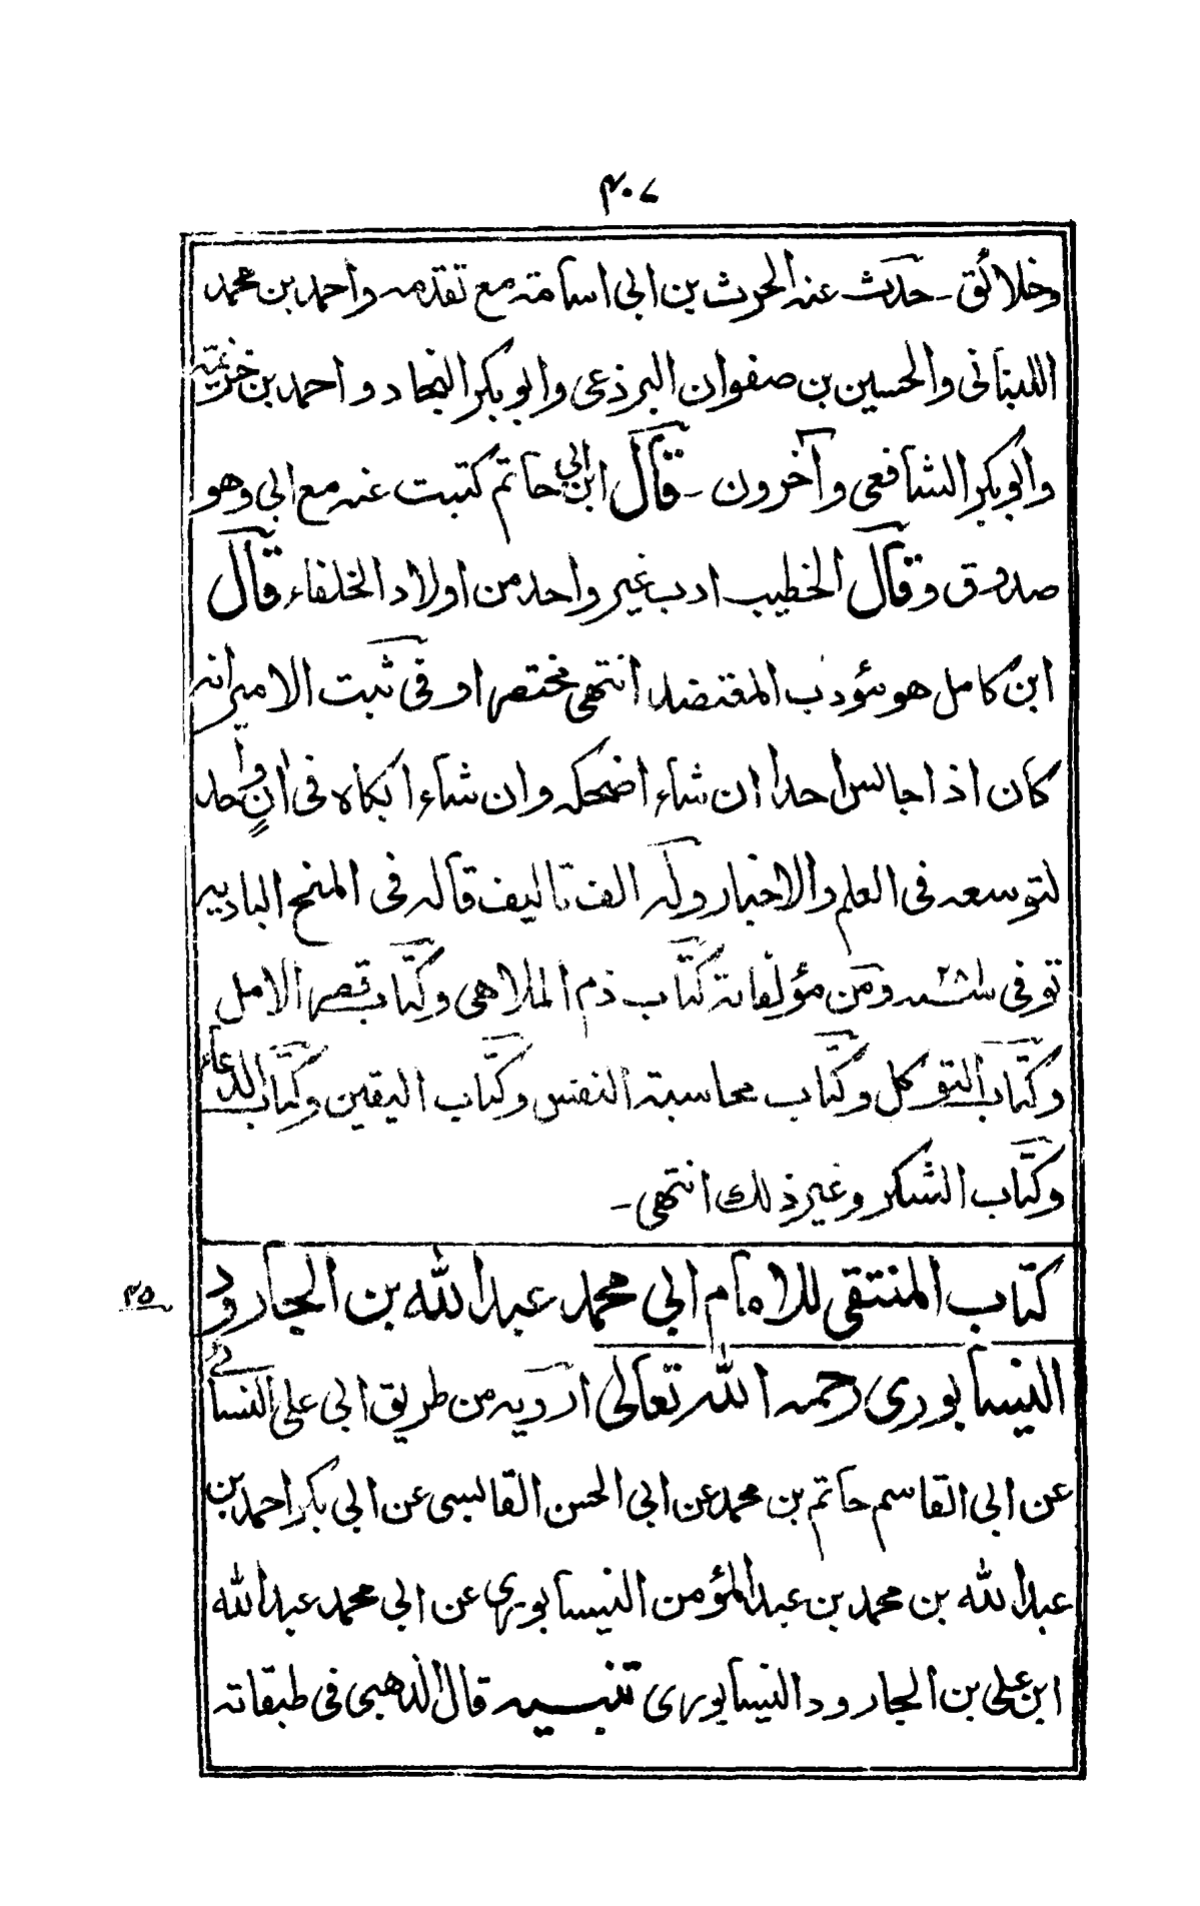 ٣٠٧
وخلائق - حدث عنه الحرث بن ابي اسامة مع تقدمه واحمد بن محمد
اللبناني والحسين بن صفوان البرذعي وابو بكر النجاد و احمد بن خزيمة
وابو بكر الشافعي وآخرون - قال ابن ابي حاتم كتبت عنه مع ابي وهو
صدوق وقال الخطيب ادب غير واحد من اولاد الخلفاء قال
ابن كامل هو مؤدب المعتضد انتهى مختصرا وفي ثبت الامير انه
كان اذا جالس احدا ان شاء اضحكه وان شاء ابكاه في ان واحد
لتوسعه في العلم والاخبار وله الف تاليف قاله في المنح البادية
توفي ٢٨١سنه ومن مؤلفاته كتاب ذم الملاهي وكتاب قصر الامل
وكتاب التوكل وكتاب محاسبة النفس وكتاب اليقين وكتاب الدعاء
وكتاب الشكر وغير ذلك انتهى -
كتاب المنتقى للامام ابي محمد عبد الله بن الجارود
٣٥
النيسابوري رحمه الله تعالى ارويه من طريق ابي علي الغساني
عن ابي القاسم حاتم بن محمد عن ابي الحسن القابسي عن ابي بكر احمد بن
عبد الله بن محمد بن عبد المؤمن النيسابوري عن ابي محمد عبد الله
ابن علي بن الجارود النيسابوري تنبيه قال الذهبي في طبقاته